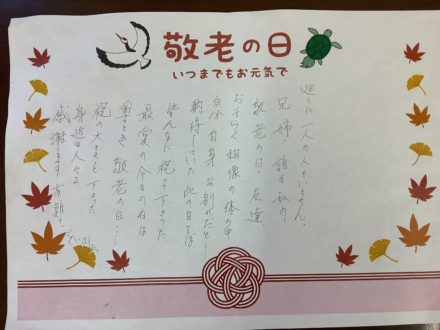 敬老の日
いつまでもお元気で
一人の人もいません。
兄姉 誰も私の
敬老の日、友達
おそらく 想像の体の中
自分自身 お別れだと
納得していた 此の日では
皆んなに 祝って下さった
最愛の今日の日は
尊とき 敬老の日……
祝の大きを下さった
身近な人々よ
感謝します 有難う